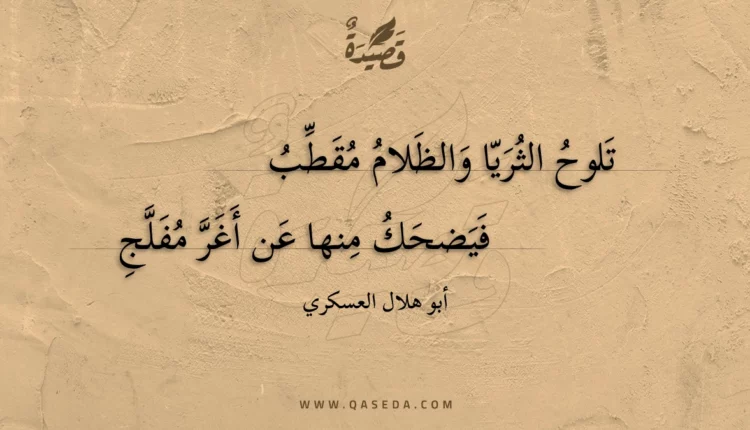 قَصِيدَةٌ
تَلوحُ الثُرَيّا وَالظَلامُ مُقَطِّبُ
فَيَضحَكُ مِنها عَن أَغَرَّ مُفَلَّجِ
أبو هلال العسكري
WWW.QASEDA.COM